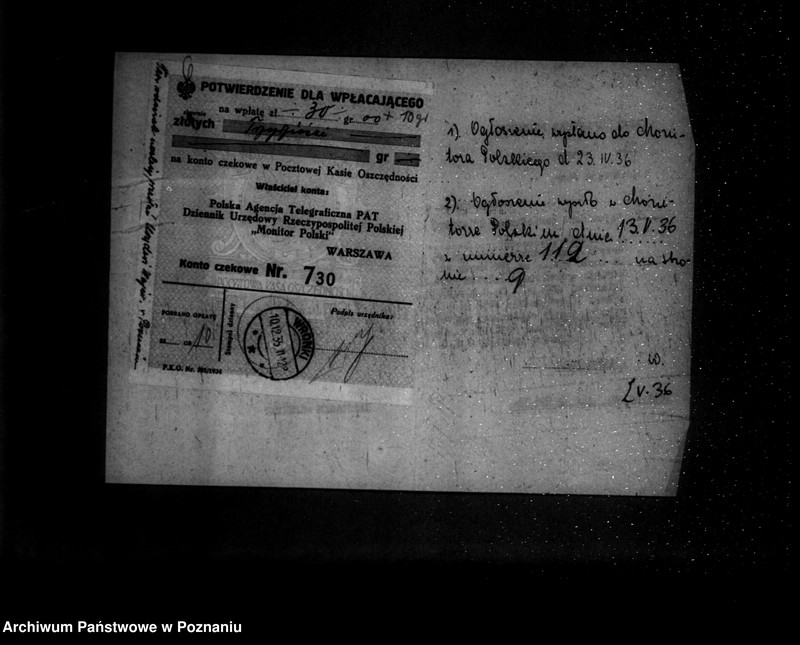 POTWIERDZENIE DLA WPŁACAJĄCEGO
na wpłatę zł 30 gr 00 + 10 gr
złotych Trzydzieści
gr
na konto czekowe w Pocztowej Kasie Oszczędności
Właściciel konta:
Polska Agencja Telegraficzna PAT
Dziennik Urzędowy Rzeczypospolitej Polskiej
„Monitor Polski"
WARSZAWA
Konto czekowe Nr. 730
POBRANO OPŁATĘ
zł gr 10
Stempel dzienny
10.12.35
WRONKI
Podpis urzędnika:
P.K.O. Nr.
1) Ogłoszenie wysłano do Moni-
tora Polskiego d 23.IV.36
2) Ogłoszenie wyszło w Moni-
torze Polskim dnia 13.V.36
z numerze 112 na stro-
nie 9
w.
V.36
Archiwum Państwowe w Poznaniu